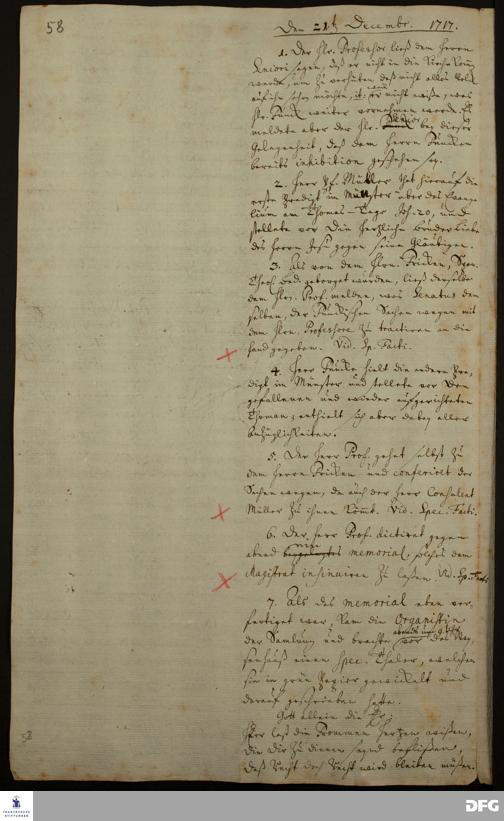 58
Den 21t. Decembr. 1717.
1. Der Hr. Professor ließ dem Herrn
Seniori sagen, daß er nicht in die Kirche kom̄en
werde, um zu verhüten daß nicht alles Volck
möchte, it. nicht wiße, was
Hr. weiter vornehmen werde. Es
meldete aber der Hr. Senior bey dieser
Gelegenheit, daß dem Herrn Füncken
bereits inhibition geschehen sey.
2. Herr Pf. Müller that hierauf die
erste Predigt im Münster über das Evange-
lium am Thomas-Tage Joh. 20, und
stellete vor Die herzliche Bruder Liebe
des Herrn Jesu gegen seine Gläubigen.
3. Als von dem Hrn. Fricken,
Theol. worden, ließ derselbe
dem Hrn. Prof. melden, was Senatus dem
selben, der Fünckischen Sachen wegen mit
dem Hrn. Professore zu tractiren an die
hand gegeben. Vid. Sp. Facti.
4. Herr Funck hielt die andere Pre-
digt im Münster und stellete vor Den
gefallenen und wieder aufgerichteten
Thomam; enthielt sich aber dabey aller
Anzüglichkeiten.
5. Der Herr Prof. gehet selbst zu
dem Herrn Fricken und conferiret der
Sachen wegen, da auch der Herr Consulent
Müller zu ihnen kom̄t. Vid. Spec. Facti.
6. Der Herr Prof. dictiret gegen
abend ein memorial, solches dem
Magistrat insinuiren zu laßen. Vid. Sp. Facti
7. Als das memorial eben ver-
fertiget war, kam die Organistin
der Samlung und brachte vor das Way-
senhauß einen spec. Thaler, welchen
sie in grün Papier gewickelt und
darauf geschrieben hatte.
Gott allein die Ehr,
Herr laß die Frommen Hertzen wißen,
die dir zu dienen seynd beflißen,
daß Recht doch Recht wird bleiben müßen.
58
FRANCKESCHE STIFTUNGEN
DFG